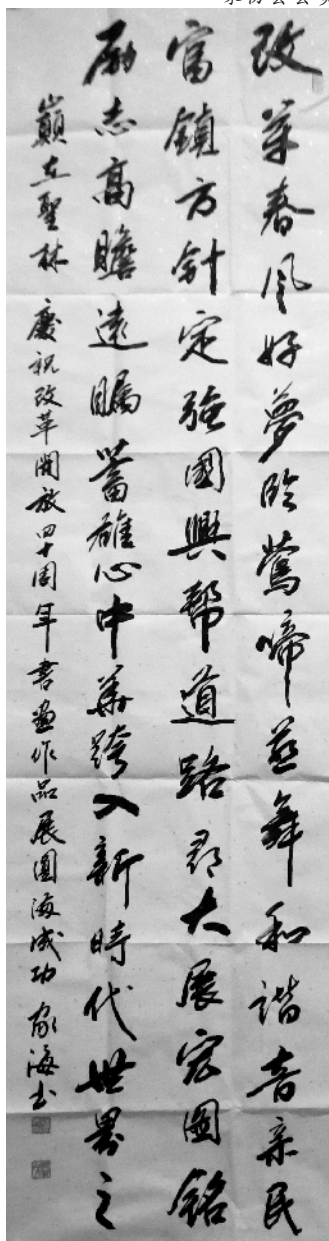 改革春风好夢吟鶯啼燕舞和諧音亲民
富鎮方針定強國興幫道路尋大展宏圖銘
励志高瞻遠矚蓄雄心中華跨入新時代世界之
巔立聖林 慶祝改革開放四十周年書畫作品展圓滿成功 家海书